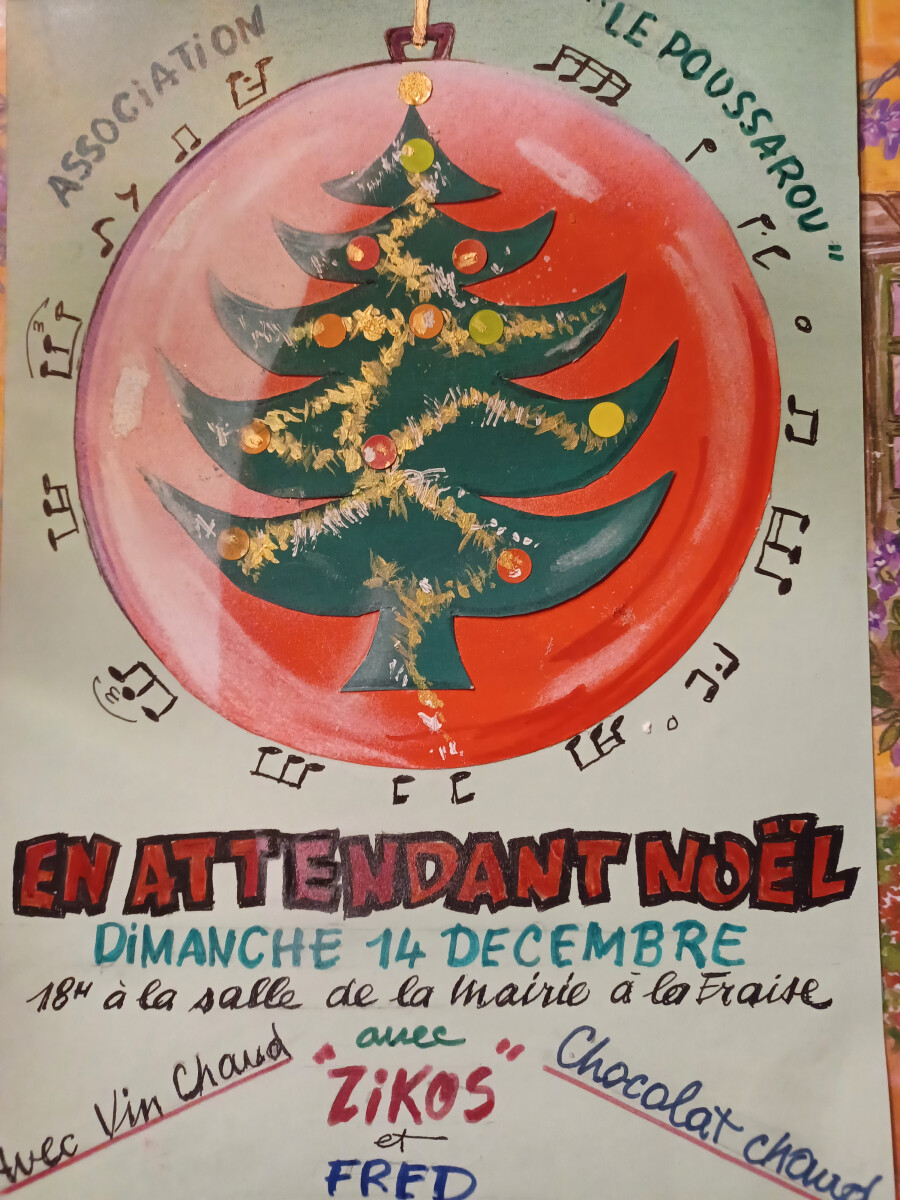 ASSOCIATION "LE POUSSAROU"
EN ATTENDANT NOËL
DIMANCHE 14 DECEMBRE
18H à la salle de la Mairie à la Fraise
avec
"ZIKOS"
et
FRED
Avec Vin Chaud
Chocolat chaud